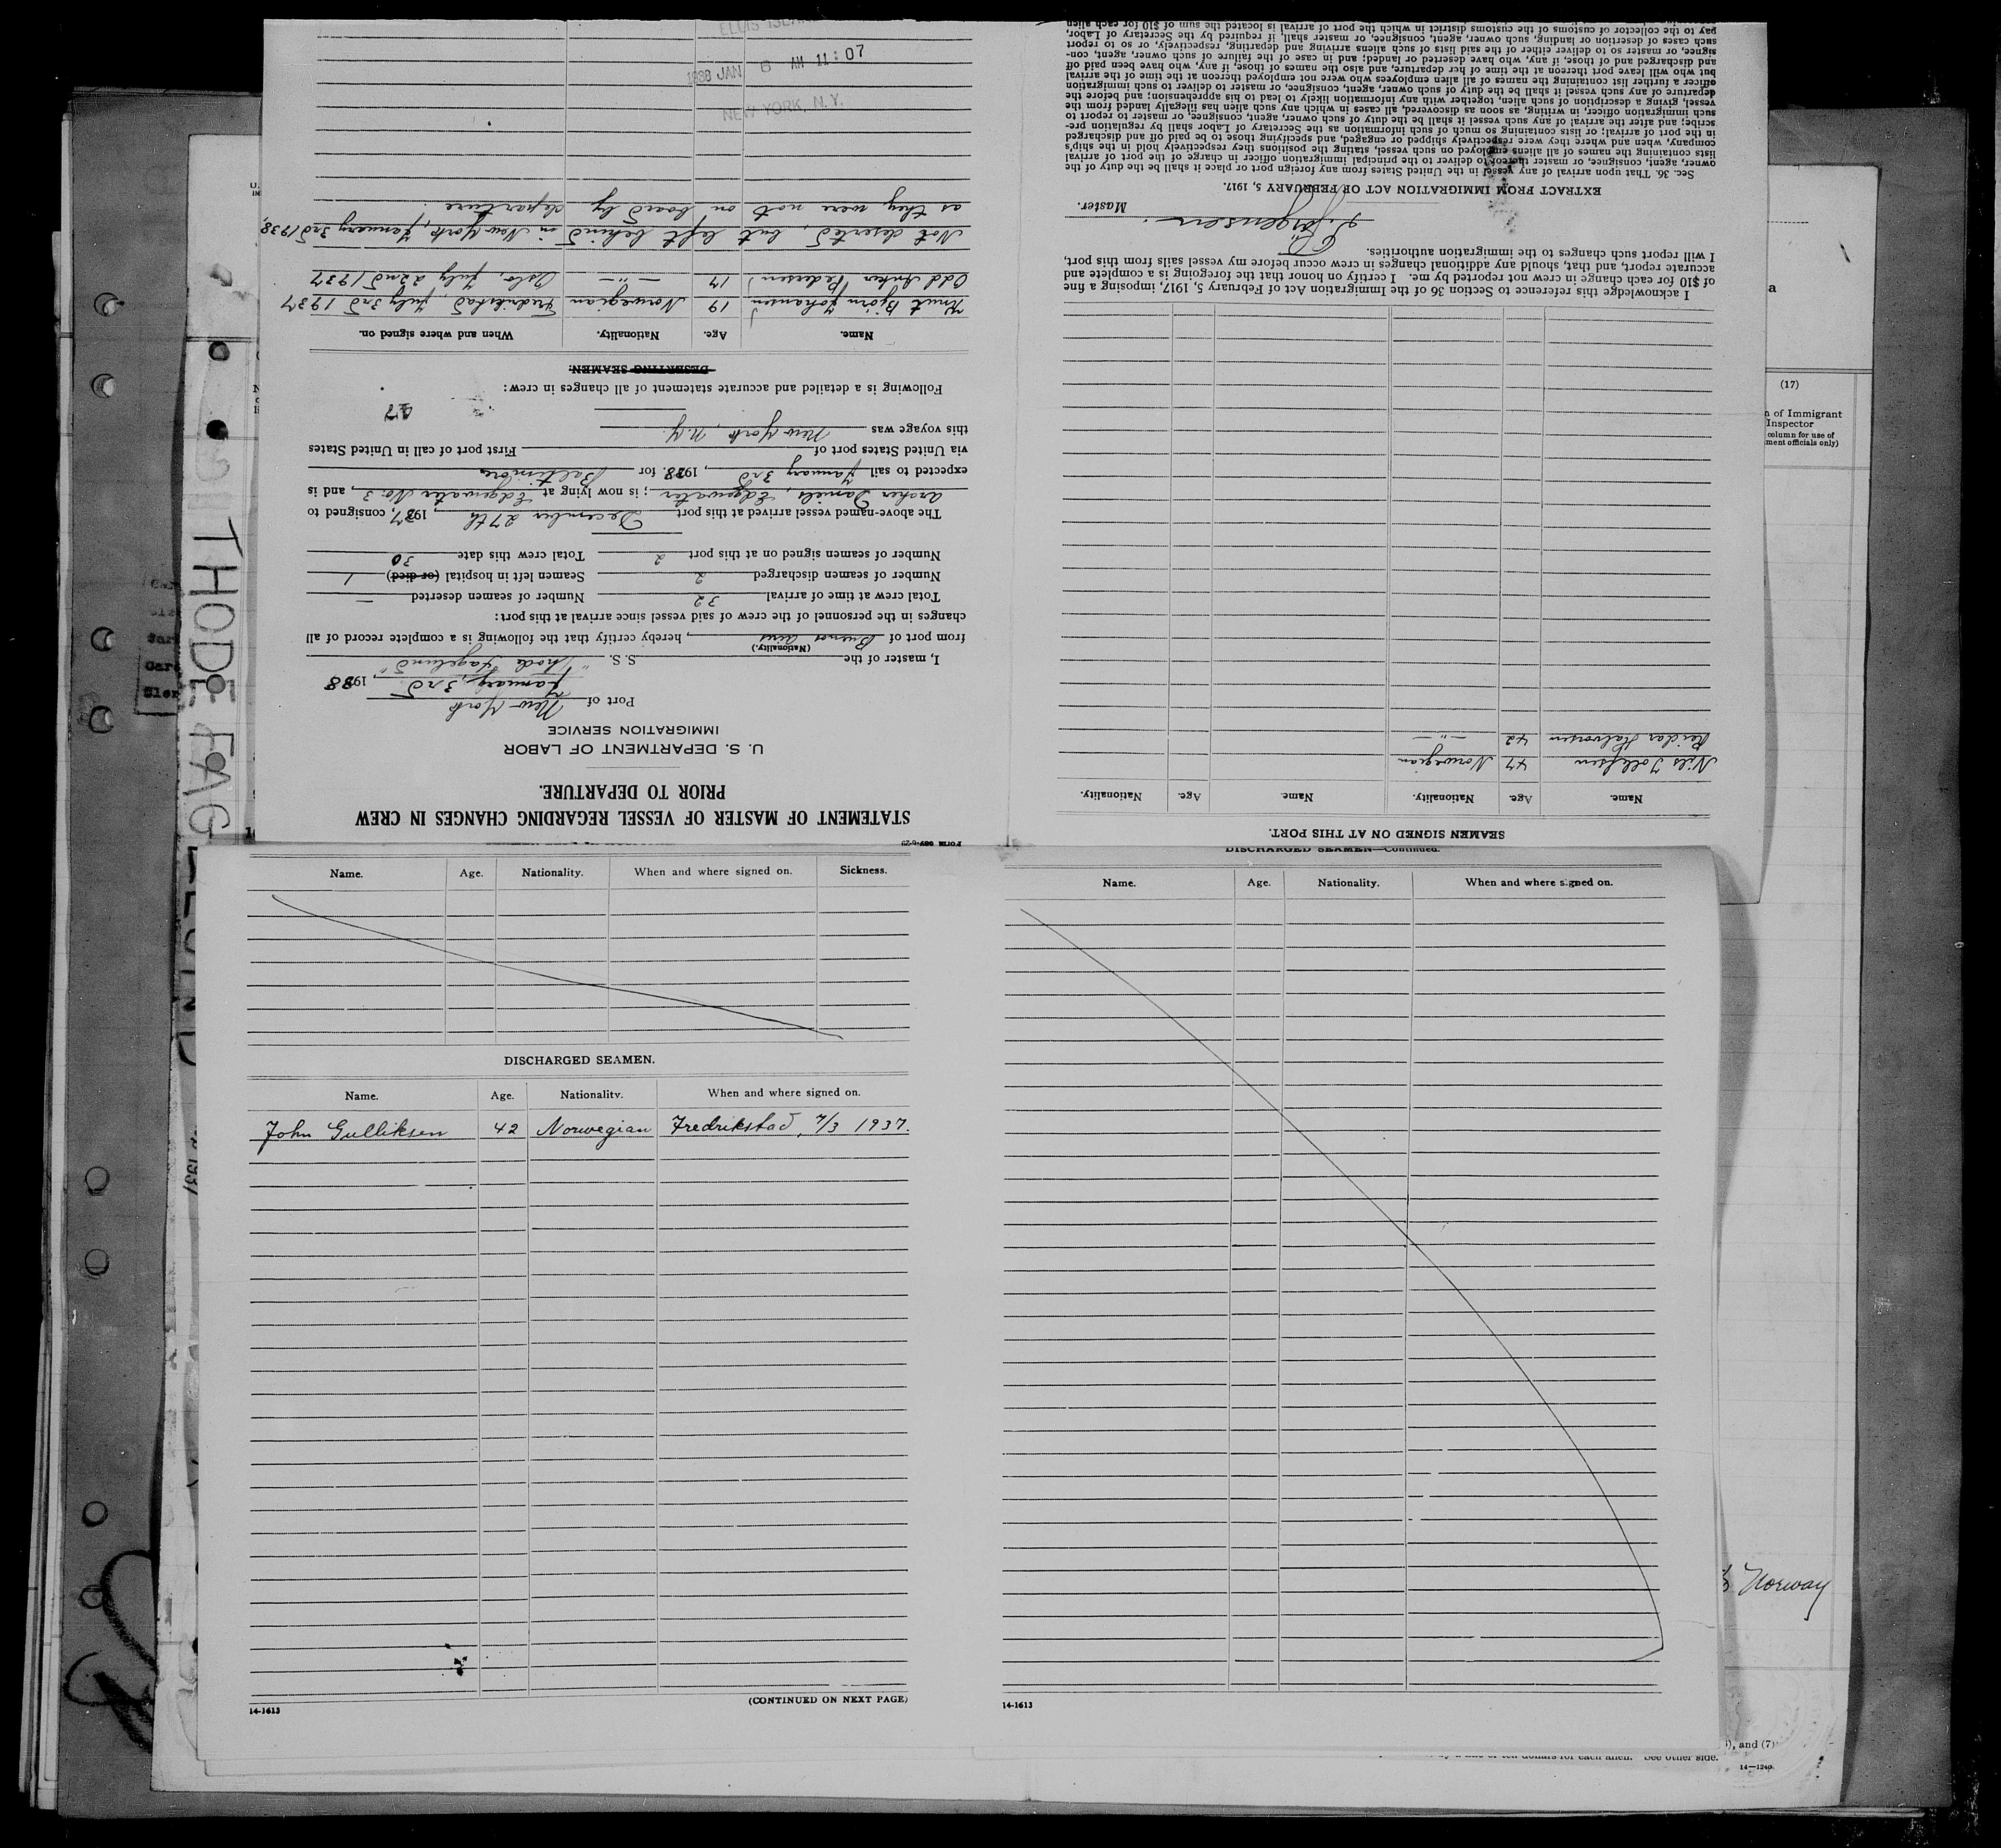 STATEMENT OF MASTER OF VESSEL REGARDING CHANGES IN CREW
PRIOR TO DEPARTURE.
U. S. DEPARTMENT OF LABOR
IMMIGRATION SERVICE
Port of New York
January, 3rd, 1938
I, master of the S. S. "Thode Fagelund"
(Nationality.)
from port of Buenos Aires, hereby certify that the following is a complete record of all
changes in the personnel of the crew of said vessel since arrival at this port:
Total crew at time of arrival 32 Number of seamen deserted —
Number of seamen discharged 2 Seamen left in hospital (or died) 1
Number of seamen signed on at this port 2 Total crew this date 30
The above-named vessel arrived at this port December 27th, 1937, consigned to
Archer Daniels, Edgewater; is now lying at Edgewater No. 3, and is
expected to sail January 3rd, 1938. for Baltimore
via United States port of First port of call in United States
this voyage was New York, N.Y.
Following is a detailed and accurate statement of all changes in crew:
DESERTING SEAMEN.
Name. Age. Nationality. When and where signed on.
Knut Björn Johansen) 19 Norwegian Fredrikstad, July 3rd 1937
Odd Anker Pedersen) 17 —"— Oslo, July 22nd 1937
Not deserted, but left behind in New York, January 3rd 1938,
as they were not on board by departure.
ELLIS ISLAND
1938 JAN 6 AM 11:07
NEW YORK, N.Y.
SEAMEN SIGNED ON AT THIS PORT.
Name. Age. Nationality. Name. Age. Nationality.
Nils Tollefsen 47 Norwegian
Reidar Halvorsen 42 —"—
I acknowledge this reference to Section 36 of the Immigration Act of February 5, 1917, imposing a fine
of $10 for each change in crew not reported by me. I certify on honor that the foregoing is a complete and
accurate report, and that, should any additional changes in crew occur before my vessel sails from this port,
I will report such changes to the immigration authorities.
Jørgensen Master.
EXTRACT FROM IMMIGRATION ACT OF FEBRUARY 5, 1917.
Sec. 36. That upon arrival of any vessel in the United States from any foreign port or place it shall be the duty of the
owner, agent, consignee, or master thereof to deliver to the principal immigration officer in charge of the port of arrival
lists containing the names of all aliens employed on such vessel, stating the positions they respectively hold in the ship's
company, when and where they were respectively shipped or engaged, and specifying those to be paid off and discharged
in the port of arrival; or lists containing so much of such information as the Secretary of Labor shall by regulation pre-
scribe; and after the arrival of any such vessel it shall be the duty of such owner, agent, consignee, or master to report to
such immigration officer, in writing, as soon as discovered, all cases in which any such alien has illegally landed from the
vessel, giving a description of such alien, together with any information likely to lead to his apprehension; and before the
departure of any such vessel it shall be the duty of such owner, agent, consignee, or master to deliver to such immigration
officer a further list containing the names of all alien employees who were not employed thereon at the time of the arrival
but who will leave port thereon at the time of her departure, and also the names of those, if any, who have been paid off
and discharged and of those, if any, who have deserted or landed; and in case of the failure of such owner, agent, con-
signee, or master so to deliver either of the said lists of such aliens arriving and departing, respectively, or so to report
such cases of desertion or landing, such owner, agent, consignee, or master shall, if required by the Secretary of Labor,
pay to the collector of customs of the customs district in which the port of arrival is located the sum of $10 for each alien
Name. Age. Nationality. When and where signed on. Sickness.
DISCHARGED SEAMEN.
Name. Age. Nationality. When and where signed on.
John Gulliksen 42 Norwegian Fredrikstad, 7/3 1937.
(CONTINUED ON NEXT PAGE)
14-1613
DISCHARGED SEAMEN—Continued.
Name. Age. Nationality. When and where signed on.
14-1613
THODE FAGELUND
1937
(17)
n of Immigrant
Inspector
column for use of
ment officials only)
Norway
), and (7)
for each alien. See other side.
14—1240